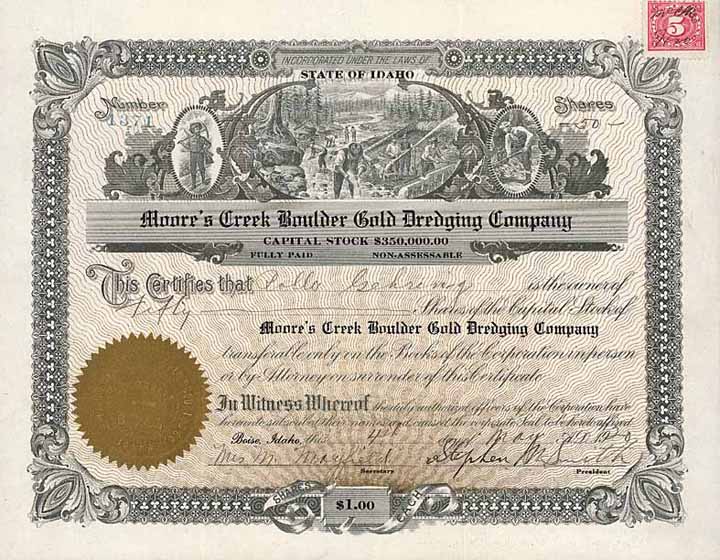 INCORPORATED UNDER THE LAWS OF
STATE OF IDAHO
Number
1371
Shares
-50-
5
Moore's Creek Boulder Gold Dredging Company
CAPITAL STOCK $350,000.00
FULLY PAID NON-ASSESSABLE
This Certifies that Rollo Gehring is the owner of
Fifty Shares of the Capital Stock of
Moore's Creek Boulder Gold Dredging Company
transferable only on the Books of the Corporation in person
or by Attorney on surrender of this Certificate
In Witness Whereof the duly authorized officers of this Corporation have
hereunto subscribed their names and caused the corporate Seal to be hereto affixed
Boise, Idaho, this 4 day of May A.D. 1920
Mrs M. Mayfield Stephen Smith
Secretary President
SHARES $1.00 EACH